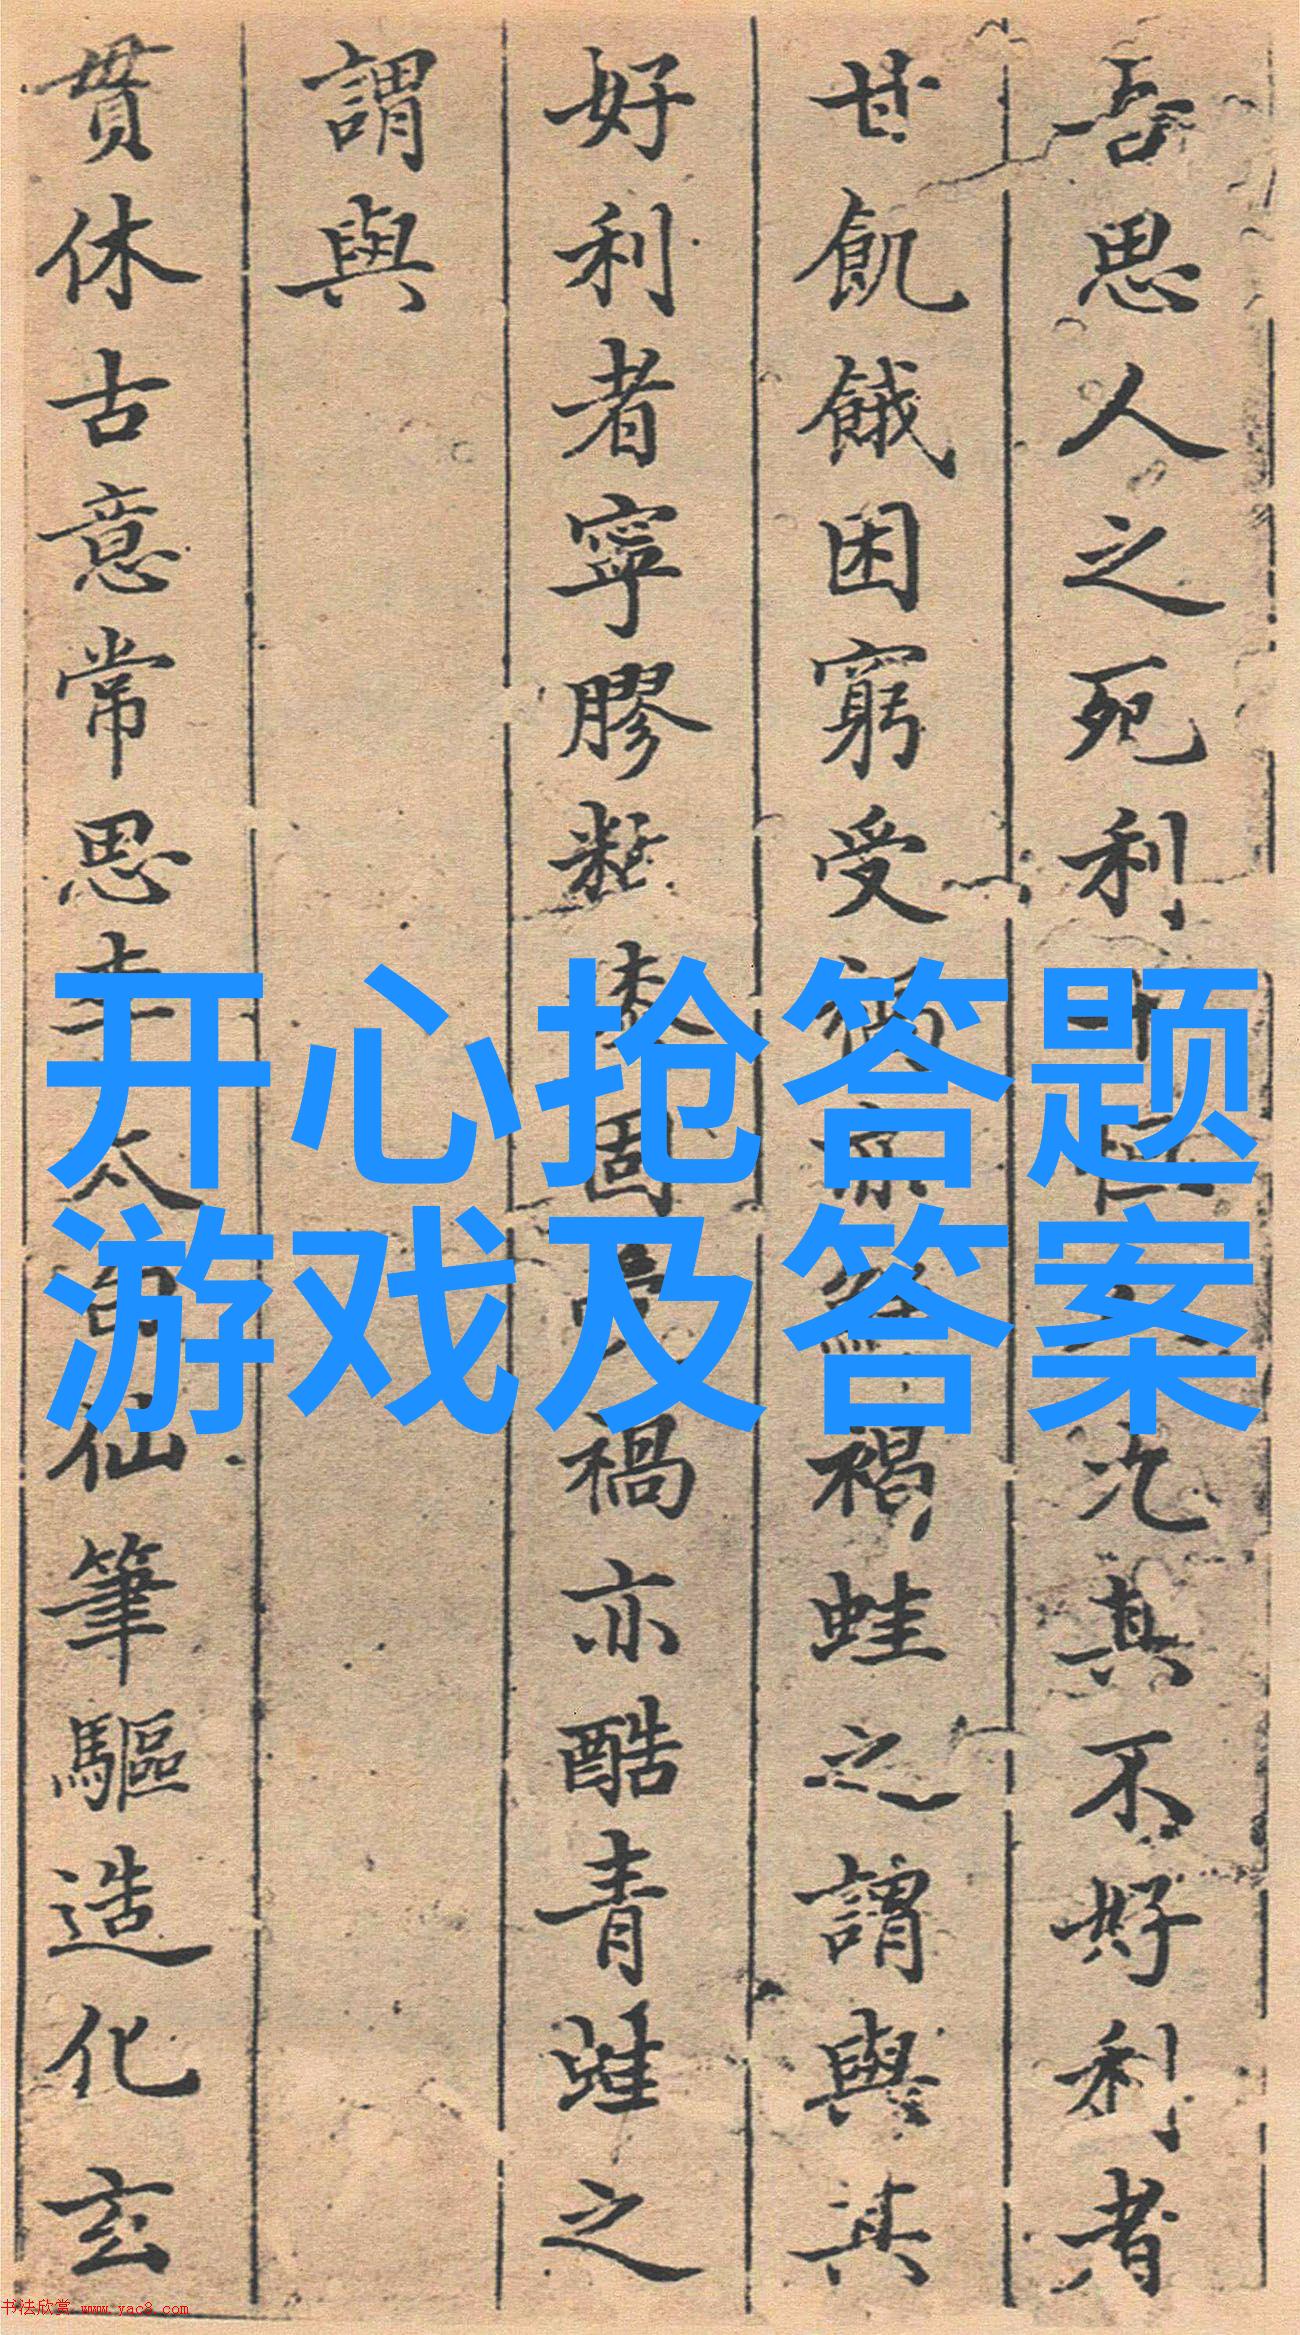 吾思人之死利
其不好利者
甘飢餓困窮受禍亦
褐蛙之謂與其
好利者寧膠
固
禍亦酷青蛙之
謂與
貫休古意常思李太白仙筆驅造化玄
开心抢答题
游戏及答案
书法欣赏 www.yac8.com